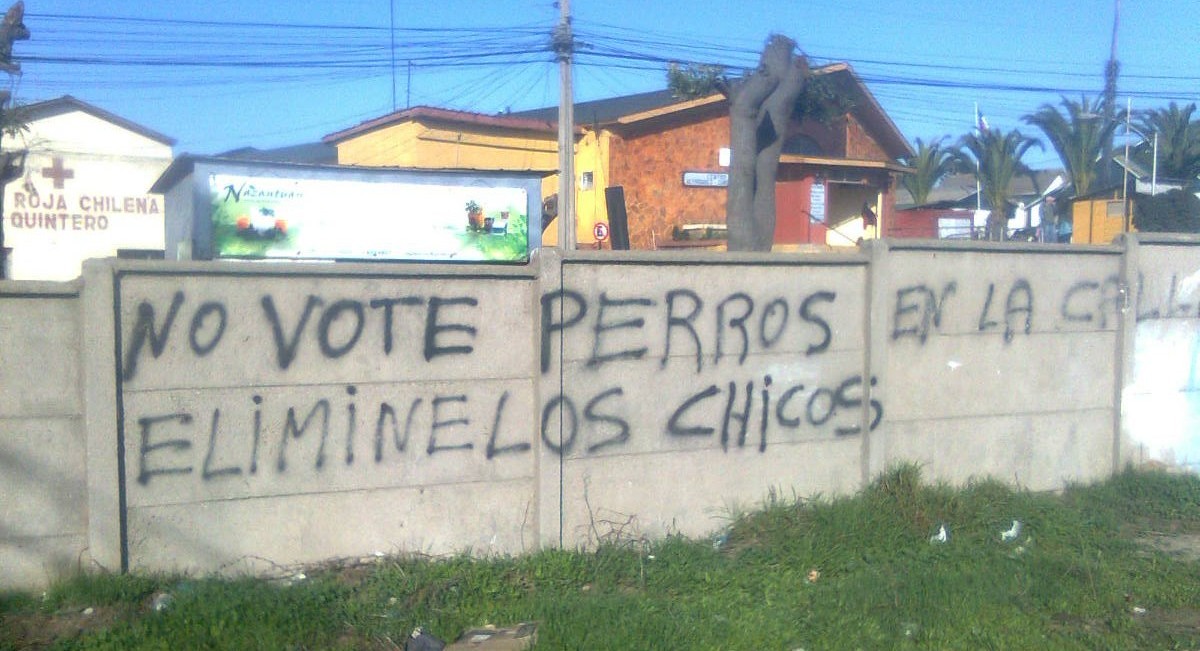 ROJA CHILENA
QUINTERO
Nazantuan
E
NO VOTE PERROS EN LA CALL
ELIMINELOS CHICOS